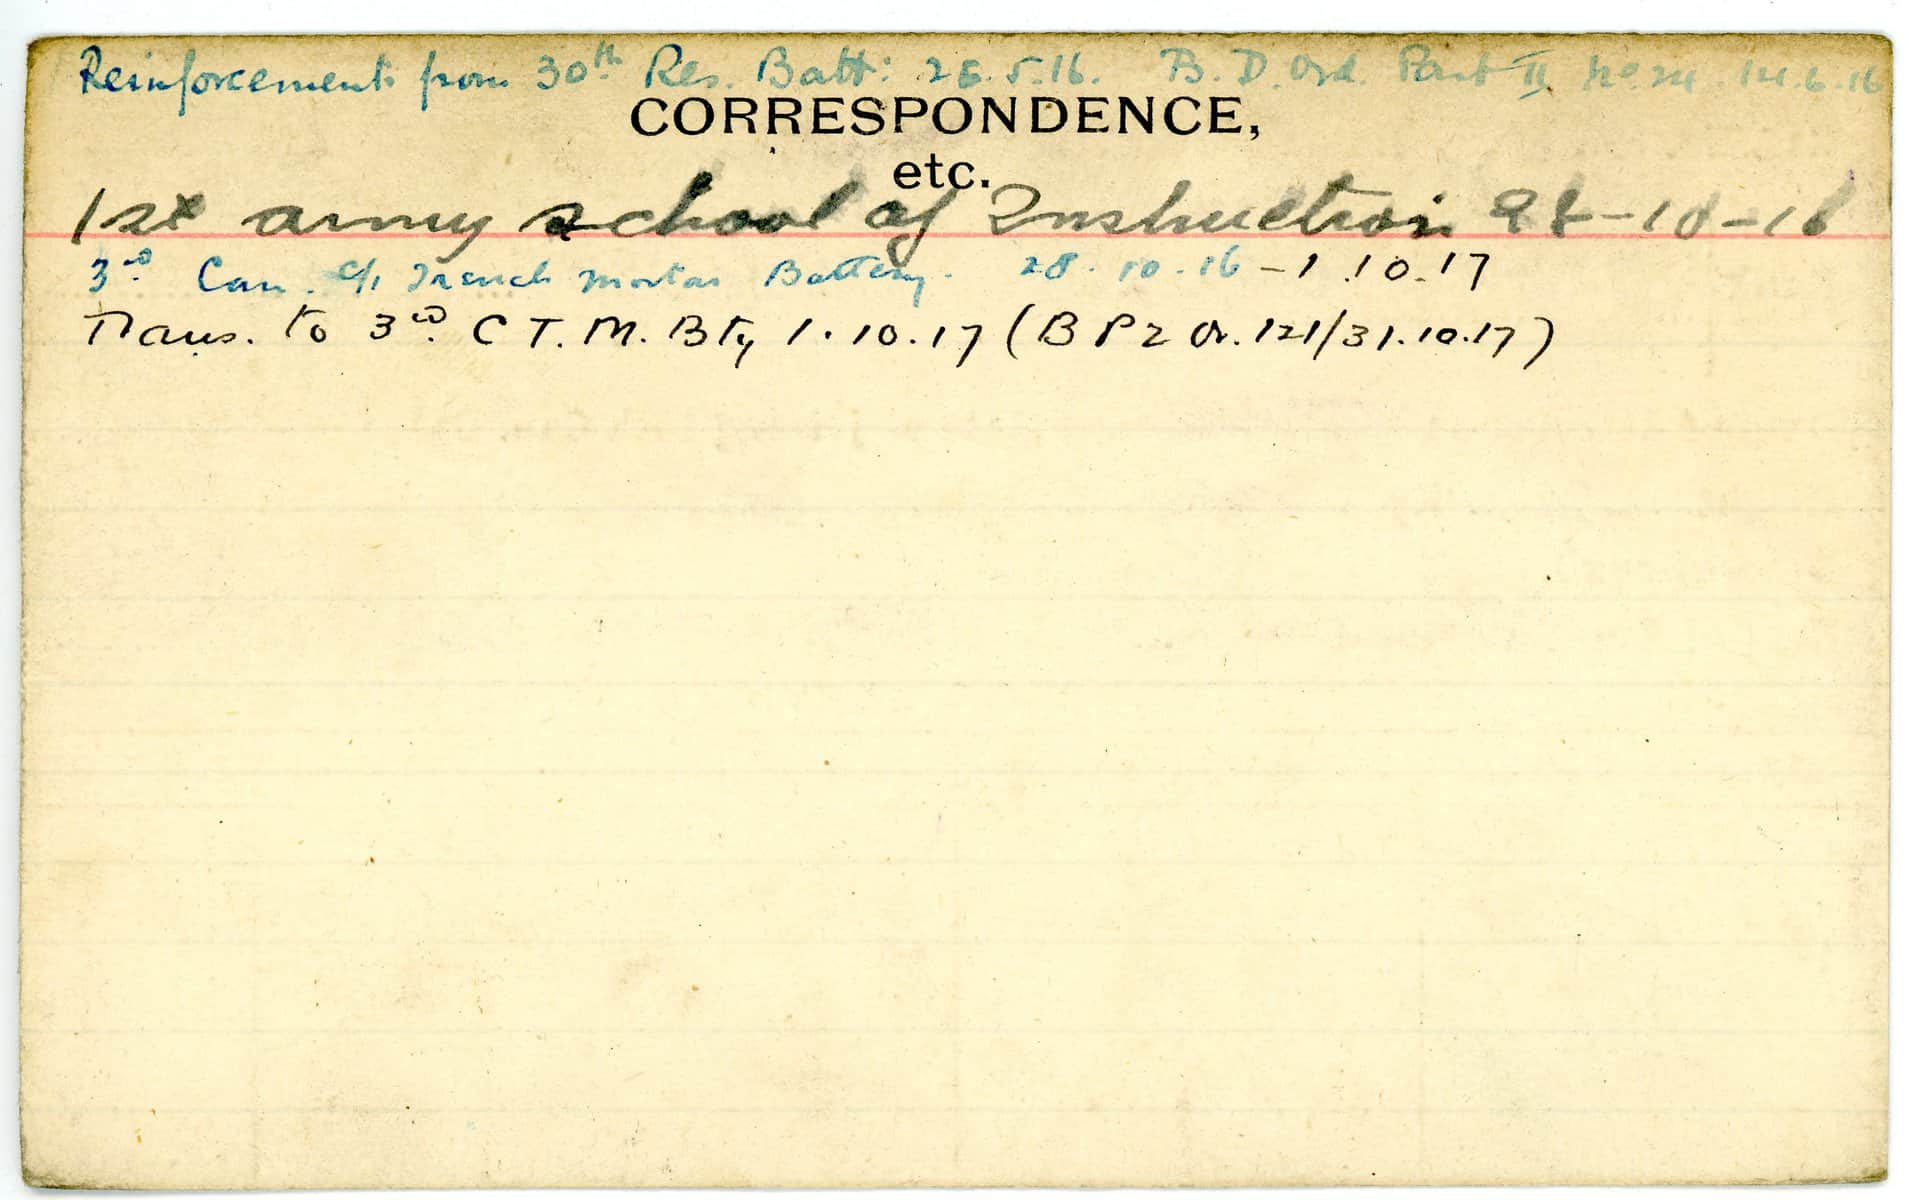 Reinforcements from 30th Res. Batt: 28.5.16. B. D. Ord. Part II No. 24. 14.6.16
CORRESPONDENCE,
etc.
1st army school of Instruction 28-10-16
3rd Can. Trench Mortar Battery. 28.10.16 - 1.10.17
Trans. to 3rd C T. M. Bty 1.10.17 (B P 2 Or. 121/31.10.17)